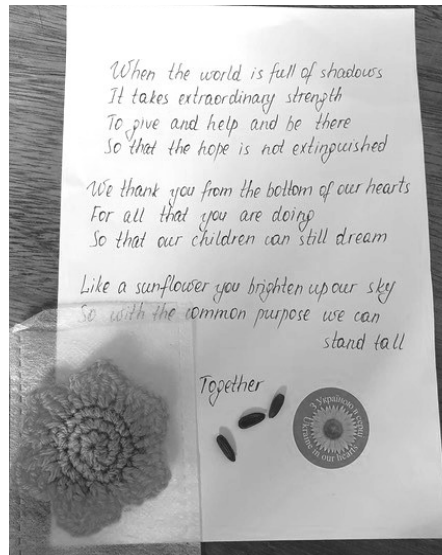 When the world is full of shadows
It takes extraordinary strength
To give and help and be there
So that the hope is not extinguished
We thank you from the bottom of our hearts
For all that you are doing
So that our children can still dream
Like a sunflower you brighten up our sky
So with the common purpose we can
stand tall
Together
З Україною в серці
Ukraine in our hearts